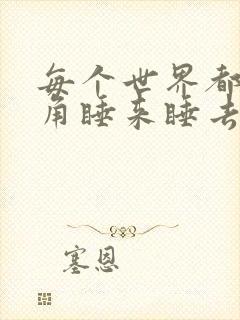 每个世界都
角睡来睡去
塞恩